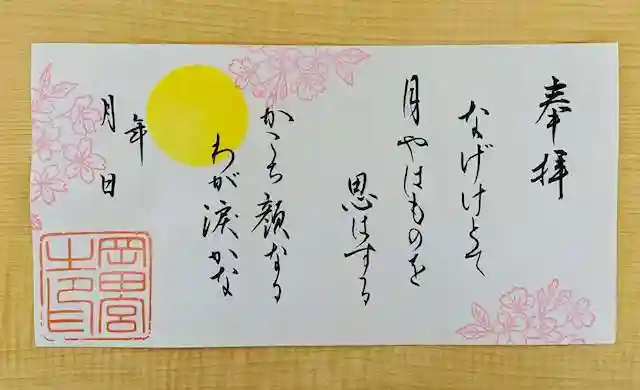 奉拝
なげけとて
月やはものを
思はする
かこち顔なる
わが涙かな
年
月 日
岡田宮
之印